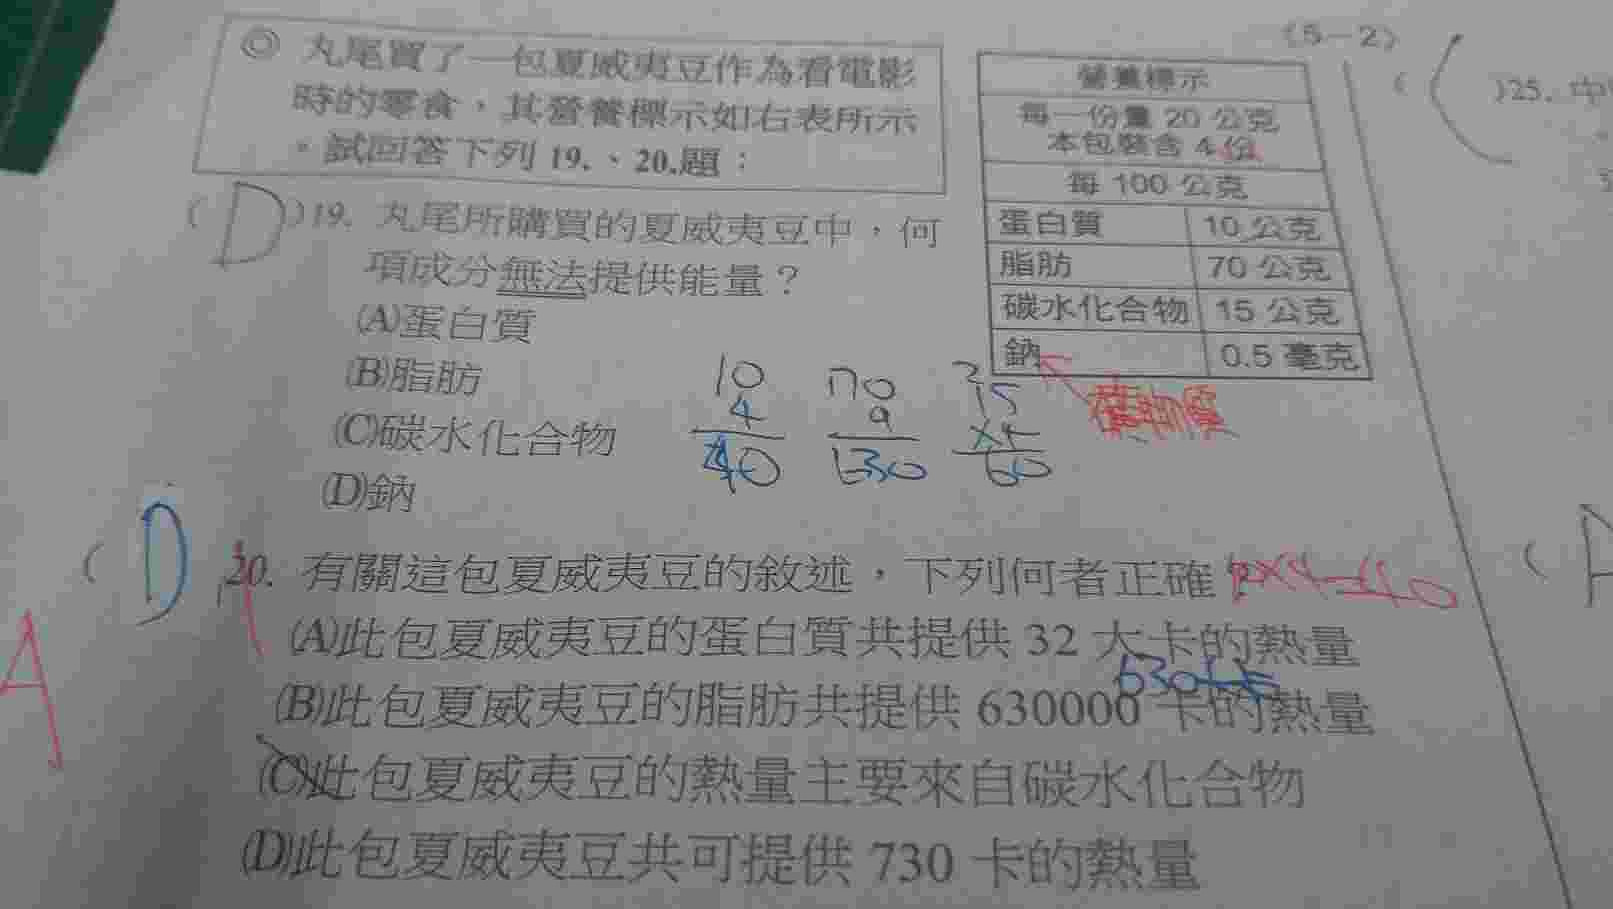 (5-2)
◎ 丸尾買了一包夏威夷豆作為看電影
時的零食，其營養標示如右表所示
。試回答下列 19.、20.題：
營養標示
每一份量 20 公克
本包裝含 4 份
每 100 公克
蛋白質 10 公克
脂肪 70 公克
碳水化合物 15 公克
鈉 0.5 毫克
礦物質
( D )19. 丸尾所購買的夏威夷豆中，何
項成分無法提供能量？
(A)蛋白質
(B)脂肪
(C)碳水化合物
(D)鈉
10
4
40
70
9
630
2
15
×4
60
( D
20. 有關這包夏威夷豆的敘述，下列何者正確？
A
(A)此包夏威夷豆的蛋白質共提供 32 大卡的熱量
(B)此包夏威夷豆的脂肪共提供 630000 卡的熱量
(C)此包夏威夷豆的熱量主要來自碳水化合物
(D)此包夏威夷豆共可提供 730 卡的熱量
( )25. 中
( A